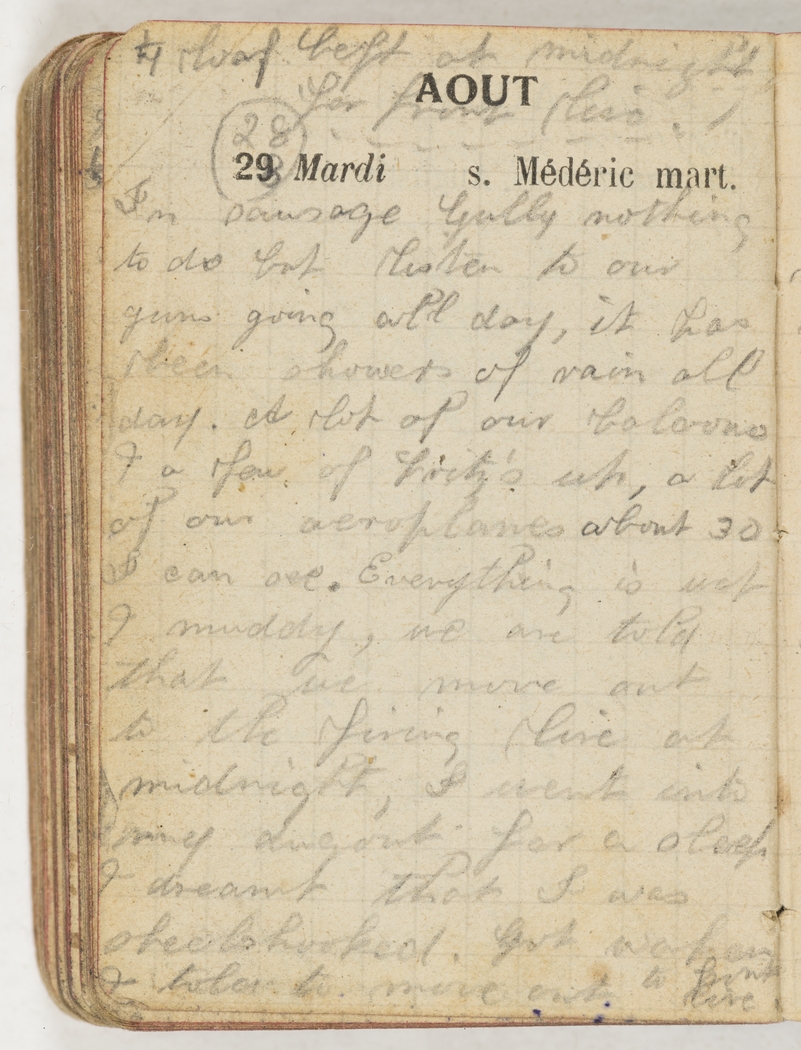 ¼ loaf left at midnight
AOUT
for front line.
28
8
29 Mardi s. Médéric mart.
In sausage Gully nothing
to do but listen to our
guns going all day, it has
been showers of rain all
day. A lot of our baloons
& a few of Fritz's up, a lot
of our aeroplanes about 30
I can see. Everything is wet
& muddy, we are told
that we move out
to the firing line at
midnight, I went into
my dugout for a sleep
& dreamt that I was
sheelshocked. Got waken
& told to move out to front
line.